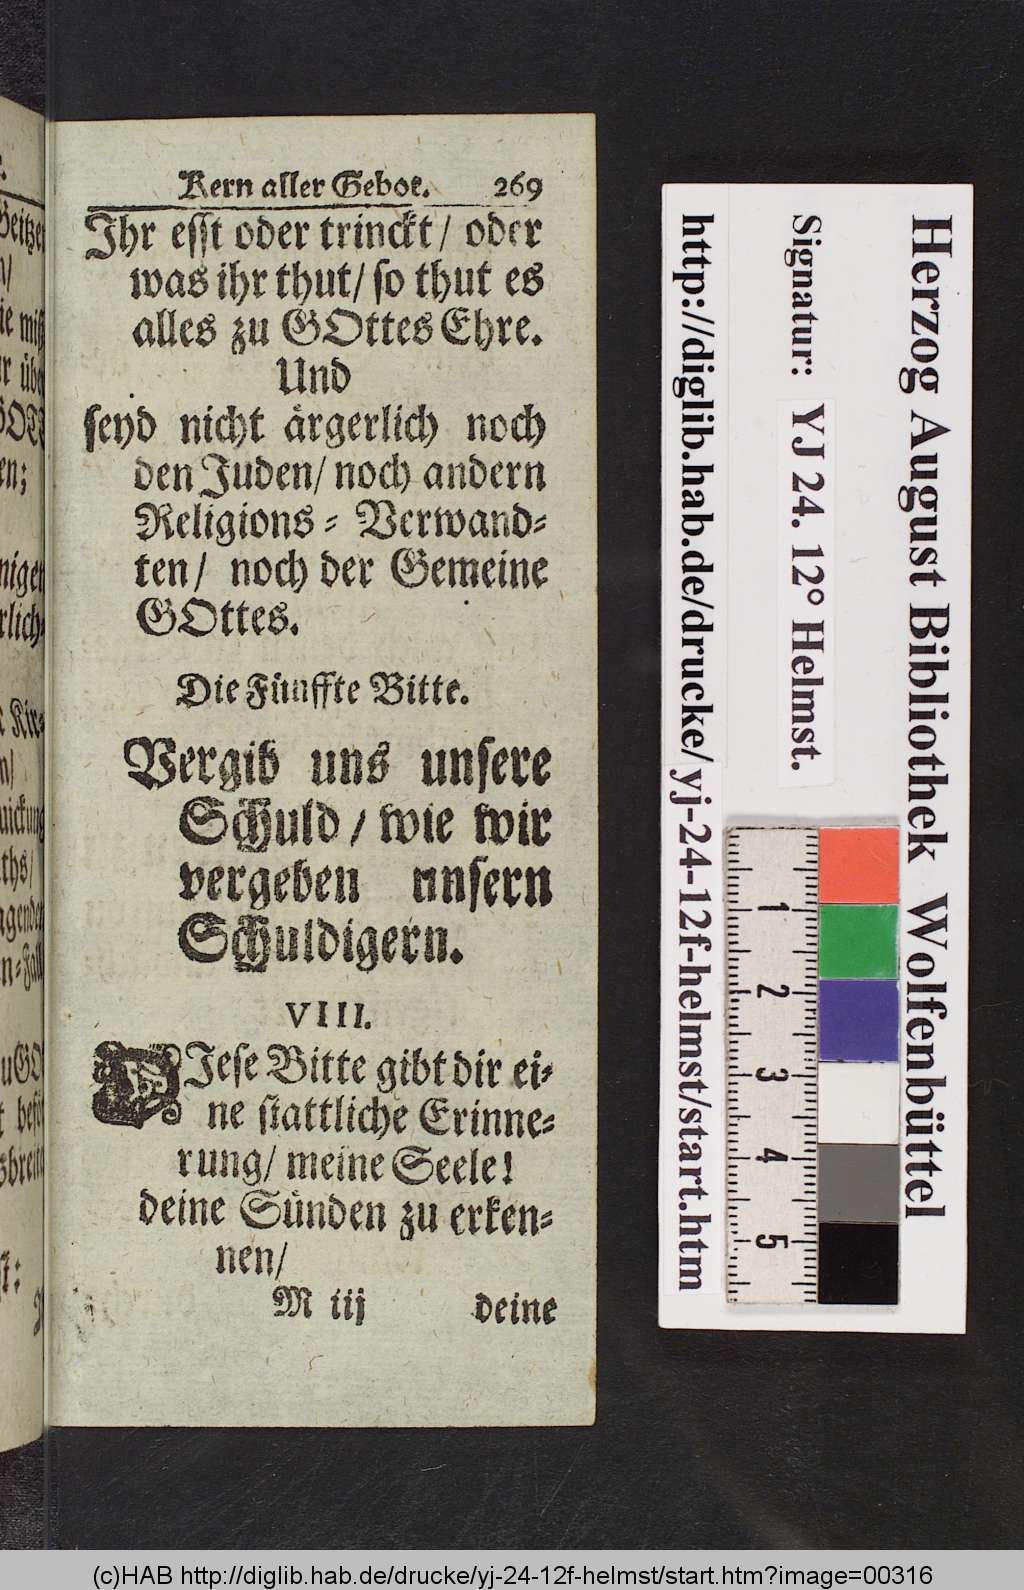 Kern aller Gebot. 269
Ihr esst oder trinckt/ oder
was ihr thut/ so thut es
alles zu GOttes Ehre.
Und
seyd nicht ärgerlich noch
den Juden/ noch andern
Religions-Verwand-
ten/ noch der Gemeine
GOttes.
Die Fünffte Bitte.
Vergib uns unsere
Schuld/ wie wir
vergeben unsern
Schuldigern.
VIII.
DIese Bitte gibt dir ei-
ne stattliche Erinne-
rung/ meine Seele!
deine Sünden zu erken-
nen/
M iij deine
Herzog August Bibliothek Wolfenbüttel
Signatur: YJ 24. 12° Helmst.
http://diglib.hab.de/drucke/yj-24-12f-helmst/start.htm
1
2
3
4
5
(c)HAB http://diglib.hab.de/drucke/yj-24-12f-helmst/start.htm?image=00316